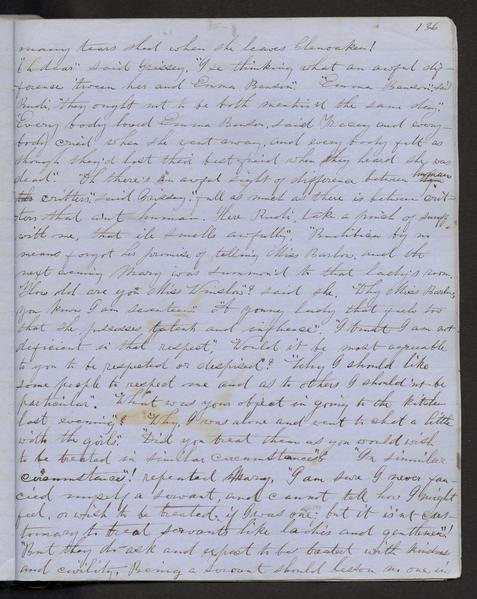 136
many tears shed when she leaves Glenoaken!
"Oh dear" said Grissey, "I'se thinking what an awful dif
ference 'tween her and Emma Benson". "Emma Benson", said
Ruth, "they ought not to be both mention'd the same day".
"Every body loved Emma Benson, said Tracey and every-
body cried when she went away, and every body felt as
though they'd lost their best friend when they heard she was
dead". "Oh there's an awful sight of difference between human
critters", said Grissey, "full as much as there is between crit-
ters that aint human. Here Ruth, take a pinch of snuff
with me, that ile smells awfully".
means forgot her promise of telling Miss Barlow, and the
next evening Mary was summon'd to that lady's room.
"How old are you Miss Winslow"? said she. "Why Miss Barlow,
you know I am seventeen" "A young lady that feels too
that she possesses talent and influence". "I trust I am not
deficient in that respect", "Would it be most agreeable
to you to be respected or despised"? "Why I should like
some people to respect me and as to others I should not be
particular". "What was your object in going to the kitchen
last evening"? "Why, I was alone and went to chat a little
with the girls". "Did you treat them as you would wish
to be treated in similar circumstances"? "In similar
circumstances"! repeated Mary, "I am sure I never fan-
cied myself a servant, and cannot tell how I might
feel, or wish to be treated, if I was one; but it isn't cus-
tomary to treat servants like ladies and gentlemen"!
"But they do ask and expect to be treated with kindness
and civility. Being a servant should lessen no one in